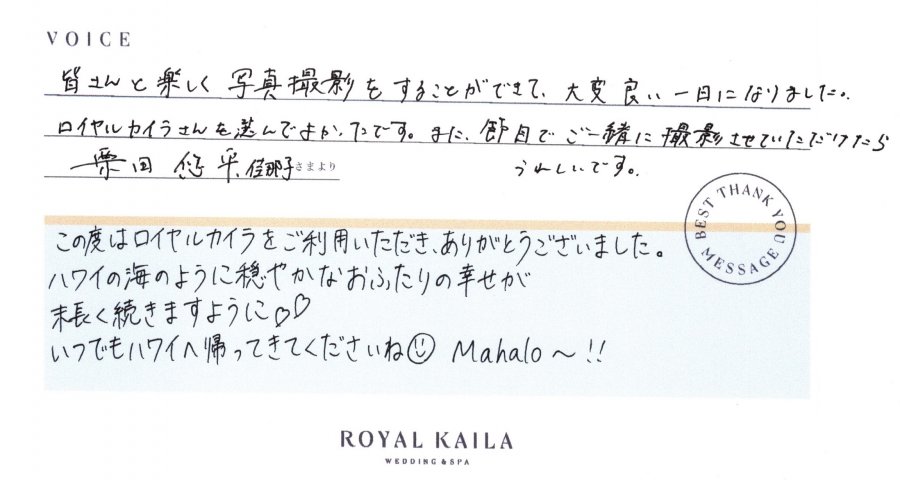 VOICE
皆さんと楽しく写真撮影をすることができて、大変良い一日になりました。
ロイヤルカイラさんを選んでよかったです。また、節目でご一緒に撮影させていただけたら
うれしいです。
栗田 悠平、佳那子さまより
BEST THANK YOU MESSAGE
この度はロイヤルカイラをご利用いただき、ありがとうございました。
ハワイの海のように穏やかなおふたりの幸せが
末長く続きますように♡♡
いつでもハワイへ帰ってきてくださいね☺ Mahalo～!!
ROYAL KAILA
WEDDING & SPA